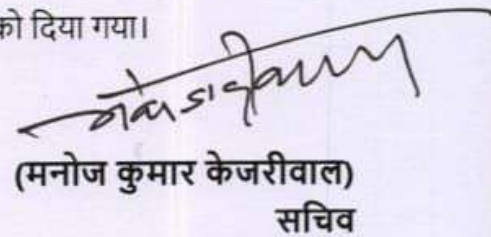 को दिया गया।
(मनोज कुमार केजरीवाल)
सचिव